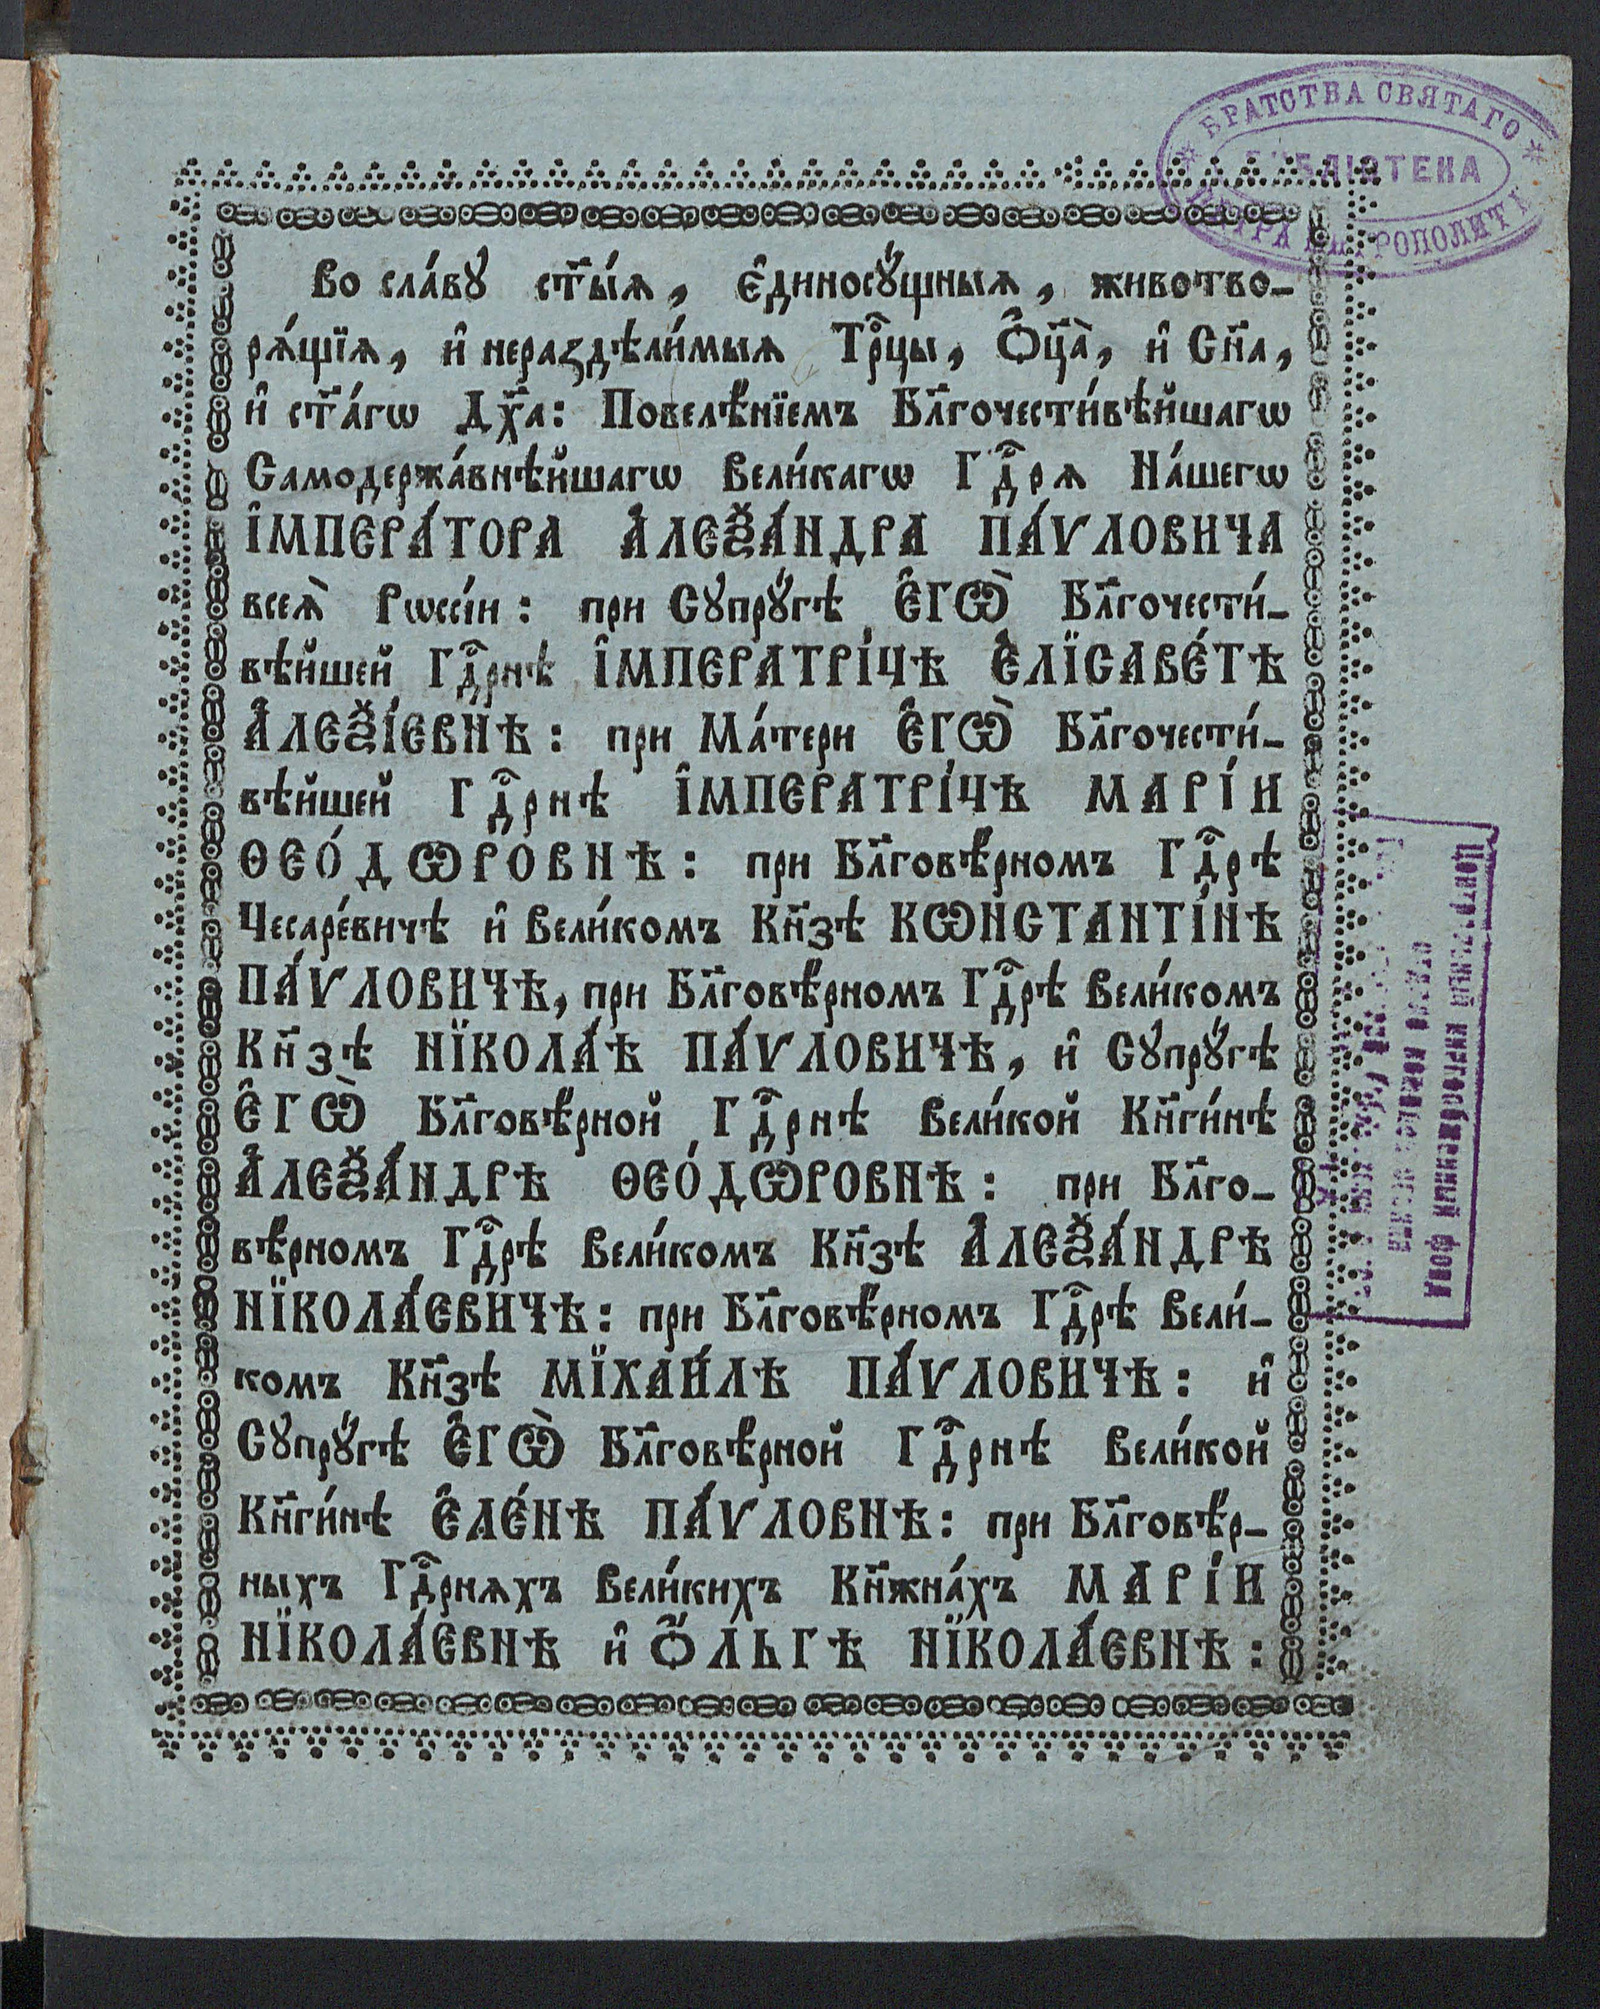 БРАТСТВА СВЯТАГО
БИБЛІОТЕКА
ПЕТРА МИТРОПОЛИТА
Во сла́вꙋ ст҃ы́ѧ, є҆диносꙋ́щныѧ, животво-
рѧ́щїѧ, и҆ нераздѣли́мыѧ Трⷪ҇цы, Ѻ҆ц҃а̀, и҆ Сн҃а,
и҆ ст҃а́гѡ Дх҃а: Повелѣ́нїемъ Бл҃гочести́вѣйшагѡ
Самодержа́внѣйшагѡ Вели́кагѡ Гдⷭ҇рѧ На́шегѡ
І҆МПЕРА́ТОРА А҆ЛЕѮА́НДРА ПА́ѴЛОВИЧА
всеѧ̀ Рѡссі́и: при Сꙋпрꙋ́гѣ Є҆ГѠ̀ Бл҃гочести́-
вѣйшей Гдⷭ҇рнѣ І҆МПЕРАТРІ́ЦѢ Є҆ЛЇСАВЕ́ТѢ
А҆ЛЕѮІ́ЕВНѢ: при Ма́тери Є҆ГѠ̀ Бл҃гочести́-
вѣйшей Гдⷭ҇рнѣ І҆МПЕРАТРІ́ЦѢ МАРІ́И
ѲЕО́ДѠРОВНѢ: при Бл҃говѣ́рномъ Гдⷭ҇рѣ
Цесаре́вичѣ и҆ Вели́комъ Кн҃зѣ КѠНСТАНТІ́НѢ
ПА́ѴЛОВИЧѢ, при Бл҃говѣ́рномъ Гдⷭ҇рѣ Вели́комъ
Кн҃зѣ НЇКОЛА́Ѣ ПА́ѴЛОВИЧѢ, и҆ Сꙋпрꙋ́гѣ
Є҆ГѠ̀ Бл҃говѣ́рной Гдⷭ҇рнѣ Вели́кой Кн҃ги́нѣ
А҆ЛЕѮА́НДРѢ ѲЕО́ДѠРОВНѢ: при Бл҃го-
вѣ́рномъ Гдⷭ҇рѣ Вели́комъ Кн҃зѣ А҆ЛЕѮА́НДРѢ
НЇКОЛА́ЕВИЧѢ: при Бл҃говѣ́рномъ Гдⷭ҇рѣ Вели́-
комъ Кн҃зѣ МЇХАИ́ЛѢ ПА́ѴЛОВИЧѢ: и҆
Сꙋпрꙋ́гѣ Є҆ГѠ̀ Бл҃говѣ́рной Гдⷭ҇рнѣ Вели́кой
Кн҃ги́нѣ Є҆ЛЕ́НѢ ПА́ѴЛОВНѢ: при Бл҃говѣ́р-
ныхъ Гдⷭ҇рнѧхъ Вели́кихъ Кн҃жна́хъ МАРІ́И
НЇКОЛА́ЕВНѢ и҆ Ѻ҆́ЛЬГѢ НЇКОЛА́ЕВНѢ:
фонд